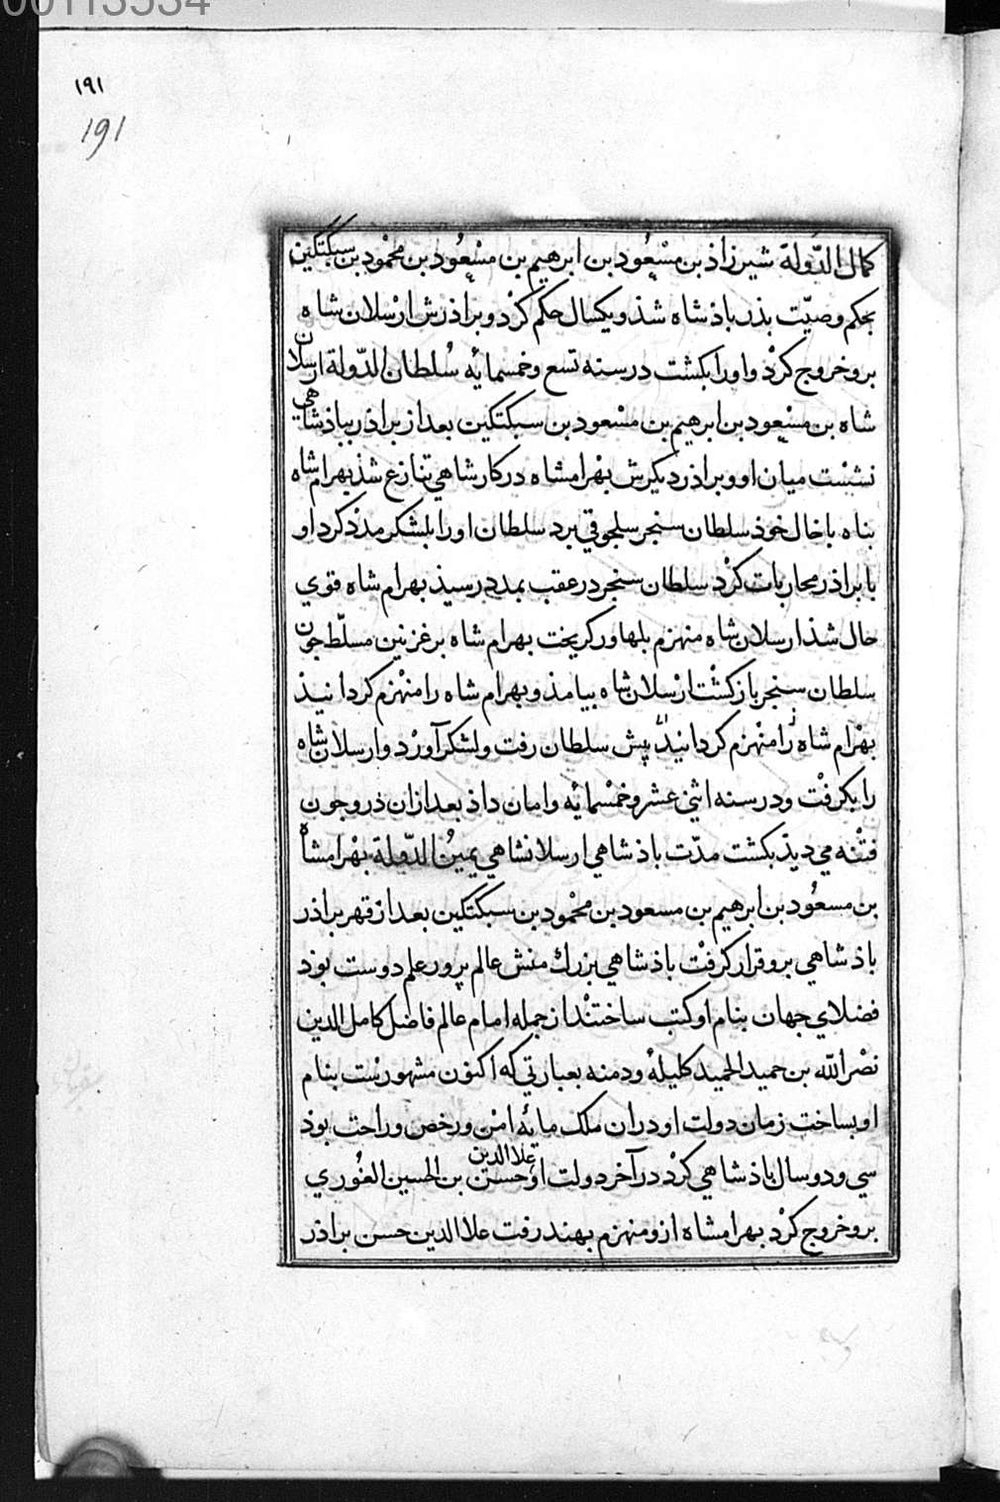 00113534
۱۹۱
191
كمال الدّولة شيرزاذ بن مسْعُود بن ابرهيم بن مسْعُود بن محْمُود بن سبكتكين
بحكم وصيّت بذر باذشاه شذ و يكسال حكم كرْد و براذرش ارْسلان شاه
برو خروج كرْد و او را بكشت در سنه تسع و خمسمائه سُلطان الدّولة ارسلان
شاه بن مسْعود بن ابرهيم بن مسْعود بن سبكتكين بعد از براذر بباذشاهي
نشسْت ميان او و براذر ديكرش بهْرامشاه در كار شاهي تنازع شذ بهرام شاه
بناه با خال خوذ سلطان سنجر سلجوقي برد سلطان او را بلشكر مدذ كرد او
با براذر محاربات كرْد سلطان سنجر در عقب بمدد رسيذ بهرام شاه قوي
حال شذ ارسلان شاه منهزم بلهاور كريخت بهرام شاه بر غزنين مسلّط جون
سلطان سنجر بازكشْت ارْسلان شاه بيامذ و بهرام شاه را منْهزم كردانيذ
بهْرام شاه را منْهزم كردانيد پيش سلطان رفت و لشكر آورْد و ارسلان شاه
را بكرفْت و در سنه اثني عشر و خمْسمائه و امان داذ بعد ازان درو جون
فتْنه مي ديذ بكشت مدّت باذشاهي ارسلانشاهي يمينُ الدّولة بهْرامشاه
بن مسعُود بن ابرهيم بن مسعود بن محْمود بن سبكتكين بعد از قهر براذر
باذشاهي برو قرار كرفْت باذشاهي بزرك منش عالم پرور علم دوست بوذ
فضلاي جهان بنام او كتب ساختنْد از جمله امام عالم فاضل كامل الدين
نصْر الله بن حميد الحميد كليله و دمنه بعبارتي كه اكنون مشهورسْت بنام
او بساخت زمان دولت او دران ملك مائه امْن و رخص و راحت بوذ
سي و دو سال باذشاهي كرْد در آخر دولت او علا الدين حسن بن الحسين الغُوري
برو خروج كرْد بهرامشاه ازو منهزم بهند رفت علا الدين حسن براذر